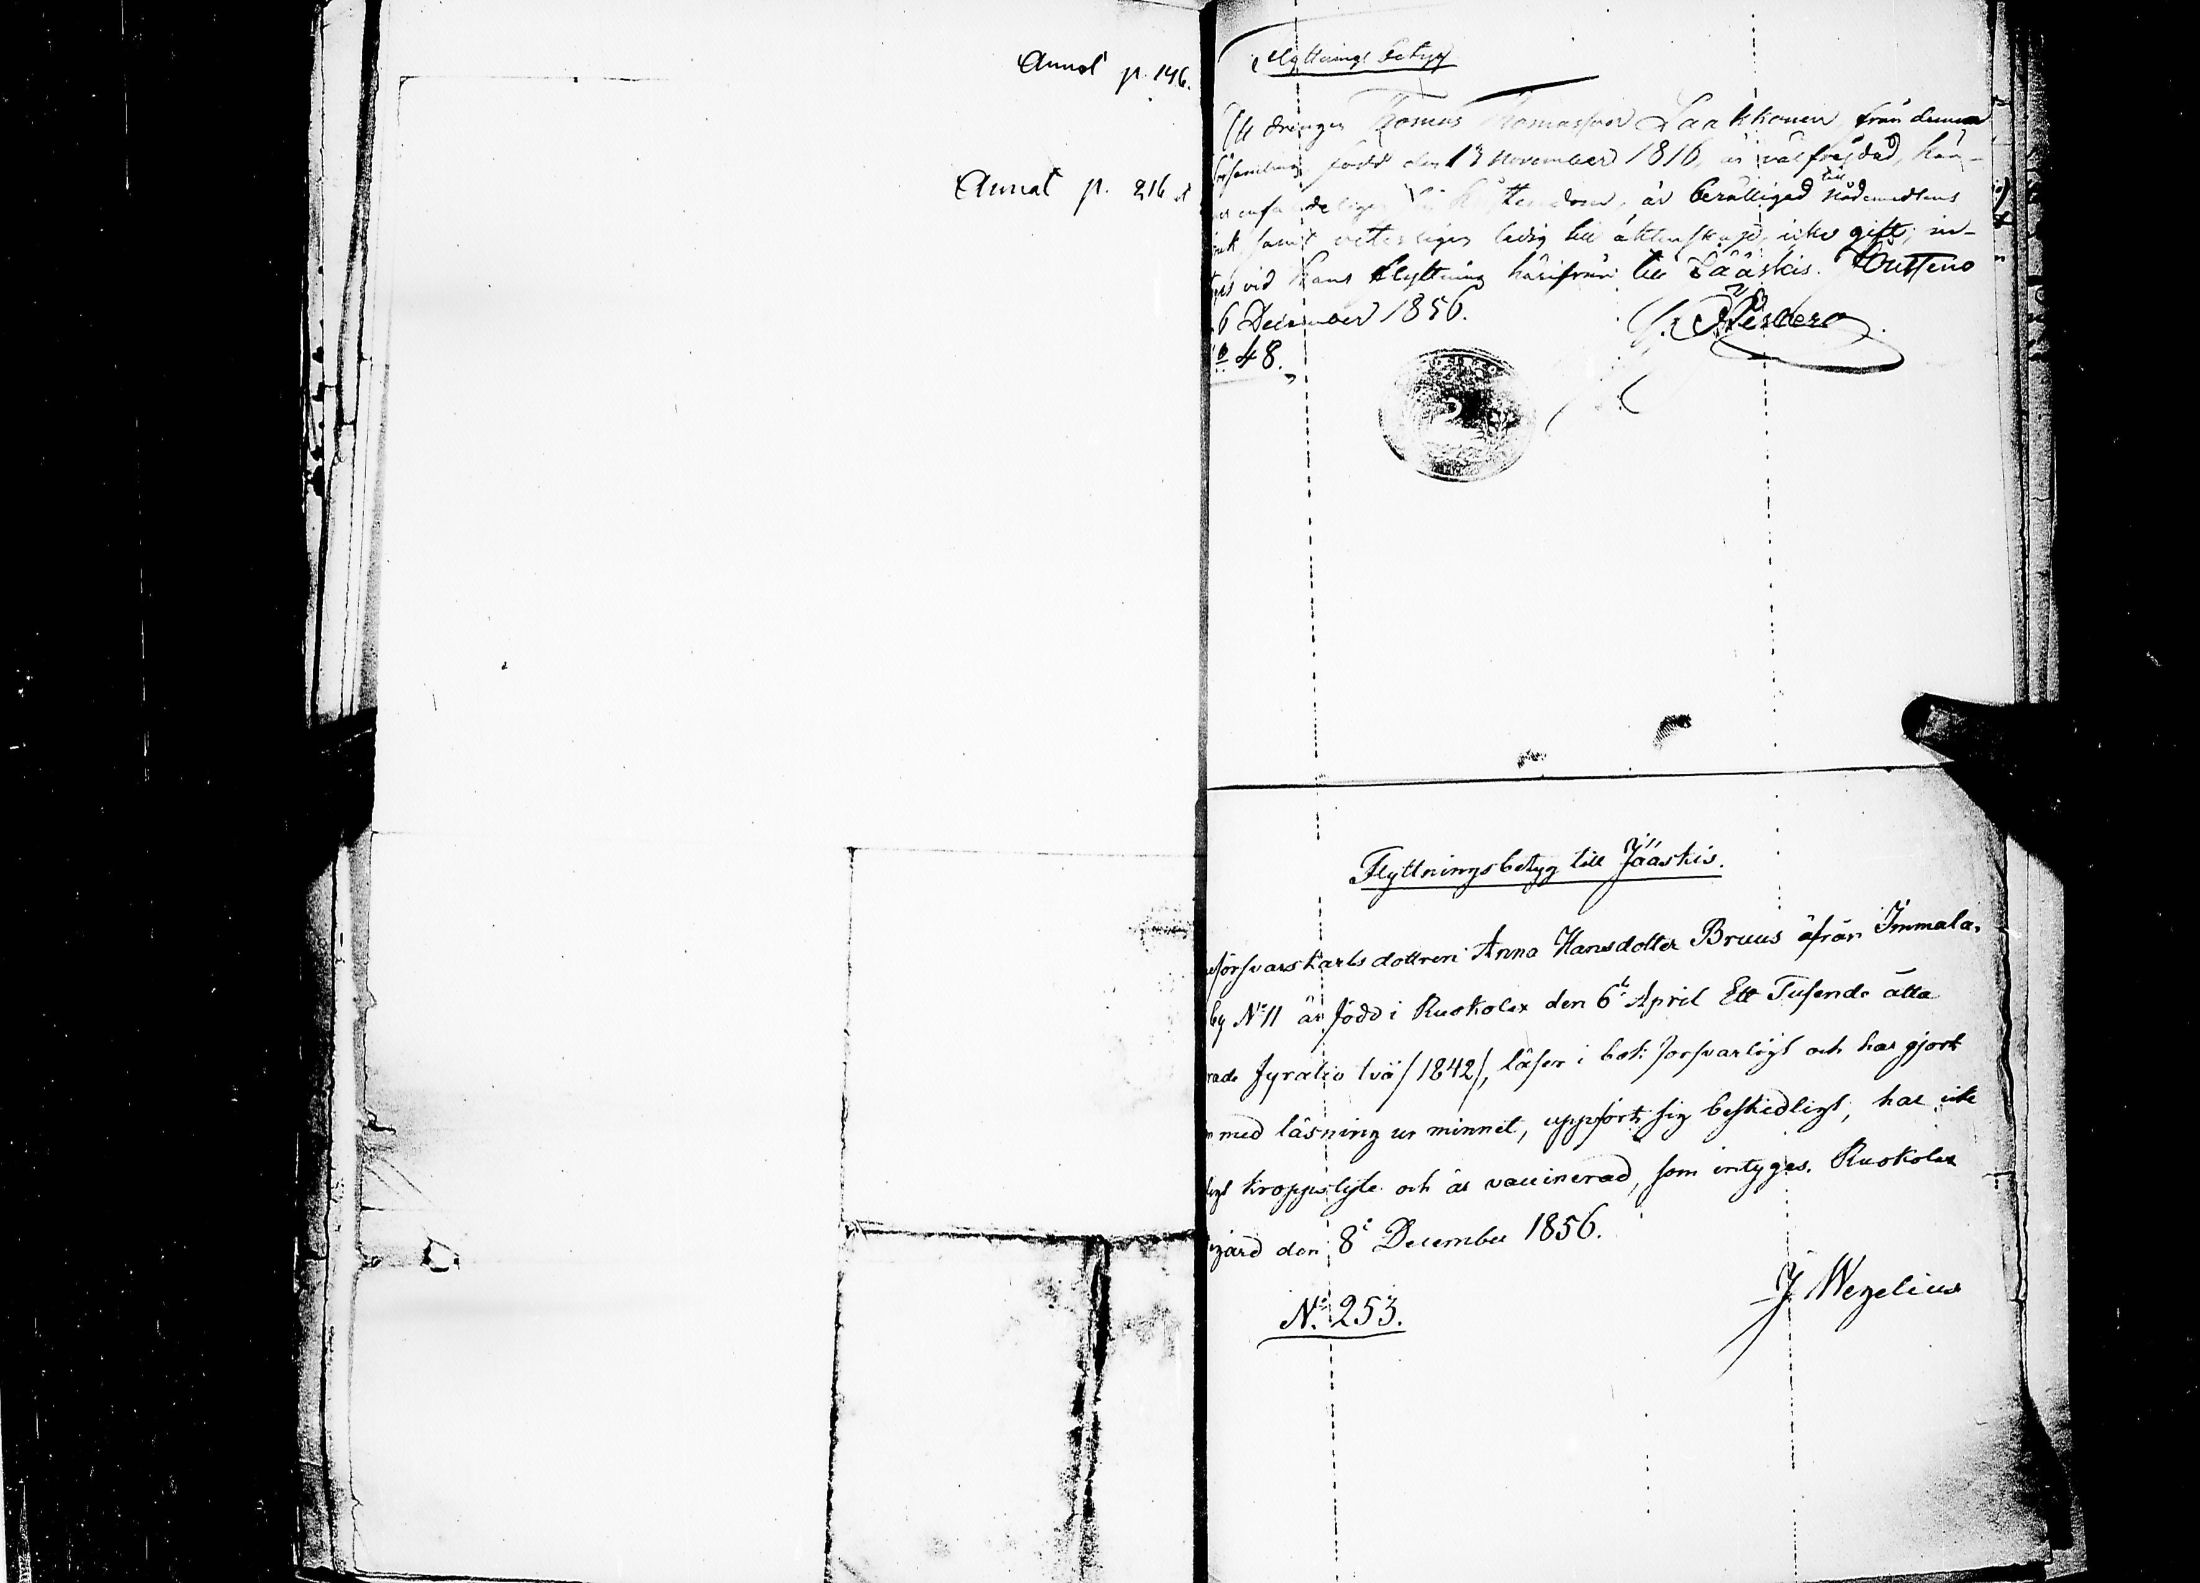 Annot p. 146.
Annot p. 216
Flyttnings betyg
Att drengen Thomas Thomasson Laakkonen från denna
församling född den 13 November 1816, är välfrejdad, hän-
är berättigad till nådemedlens
samt veterligen ledig till äktenskap, icke gift; in-
vid hans flyttning härifrån till Jääskis. Joutseno
6 December 1856.
48.
Flyttningsbetyg till Jääskis.
försvarskarlsdottren Anna Hansdotter Bruus ifrån Immala
by No 11 är född i Ruokolax den 6te April Ett Tusende åtta
rade fyratio två /1842/, läser i bok försvarligt och har gjort
med läsning ur minnet, uppfört sig beskedligt, har icke
ligt kroppslyte och är vaccinerad, som intyges. Ruokolax
gård den 8e December 1856.
No 253.
J Wegelius